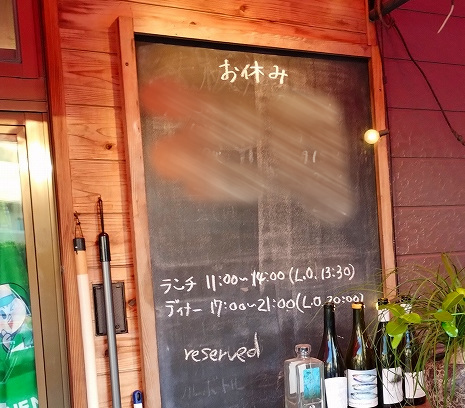 お休み
ランチ 11:00~14:00(L.O. 13:30)
ディナー 17:00~21:00(L.O. 20:00)
reserved